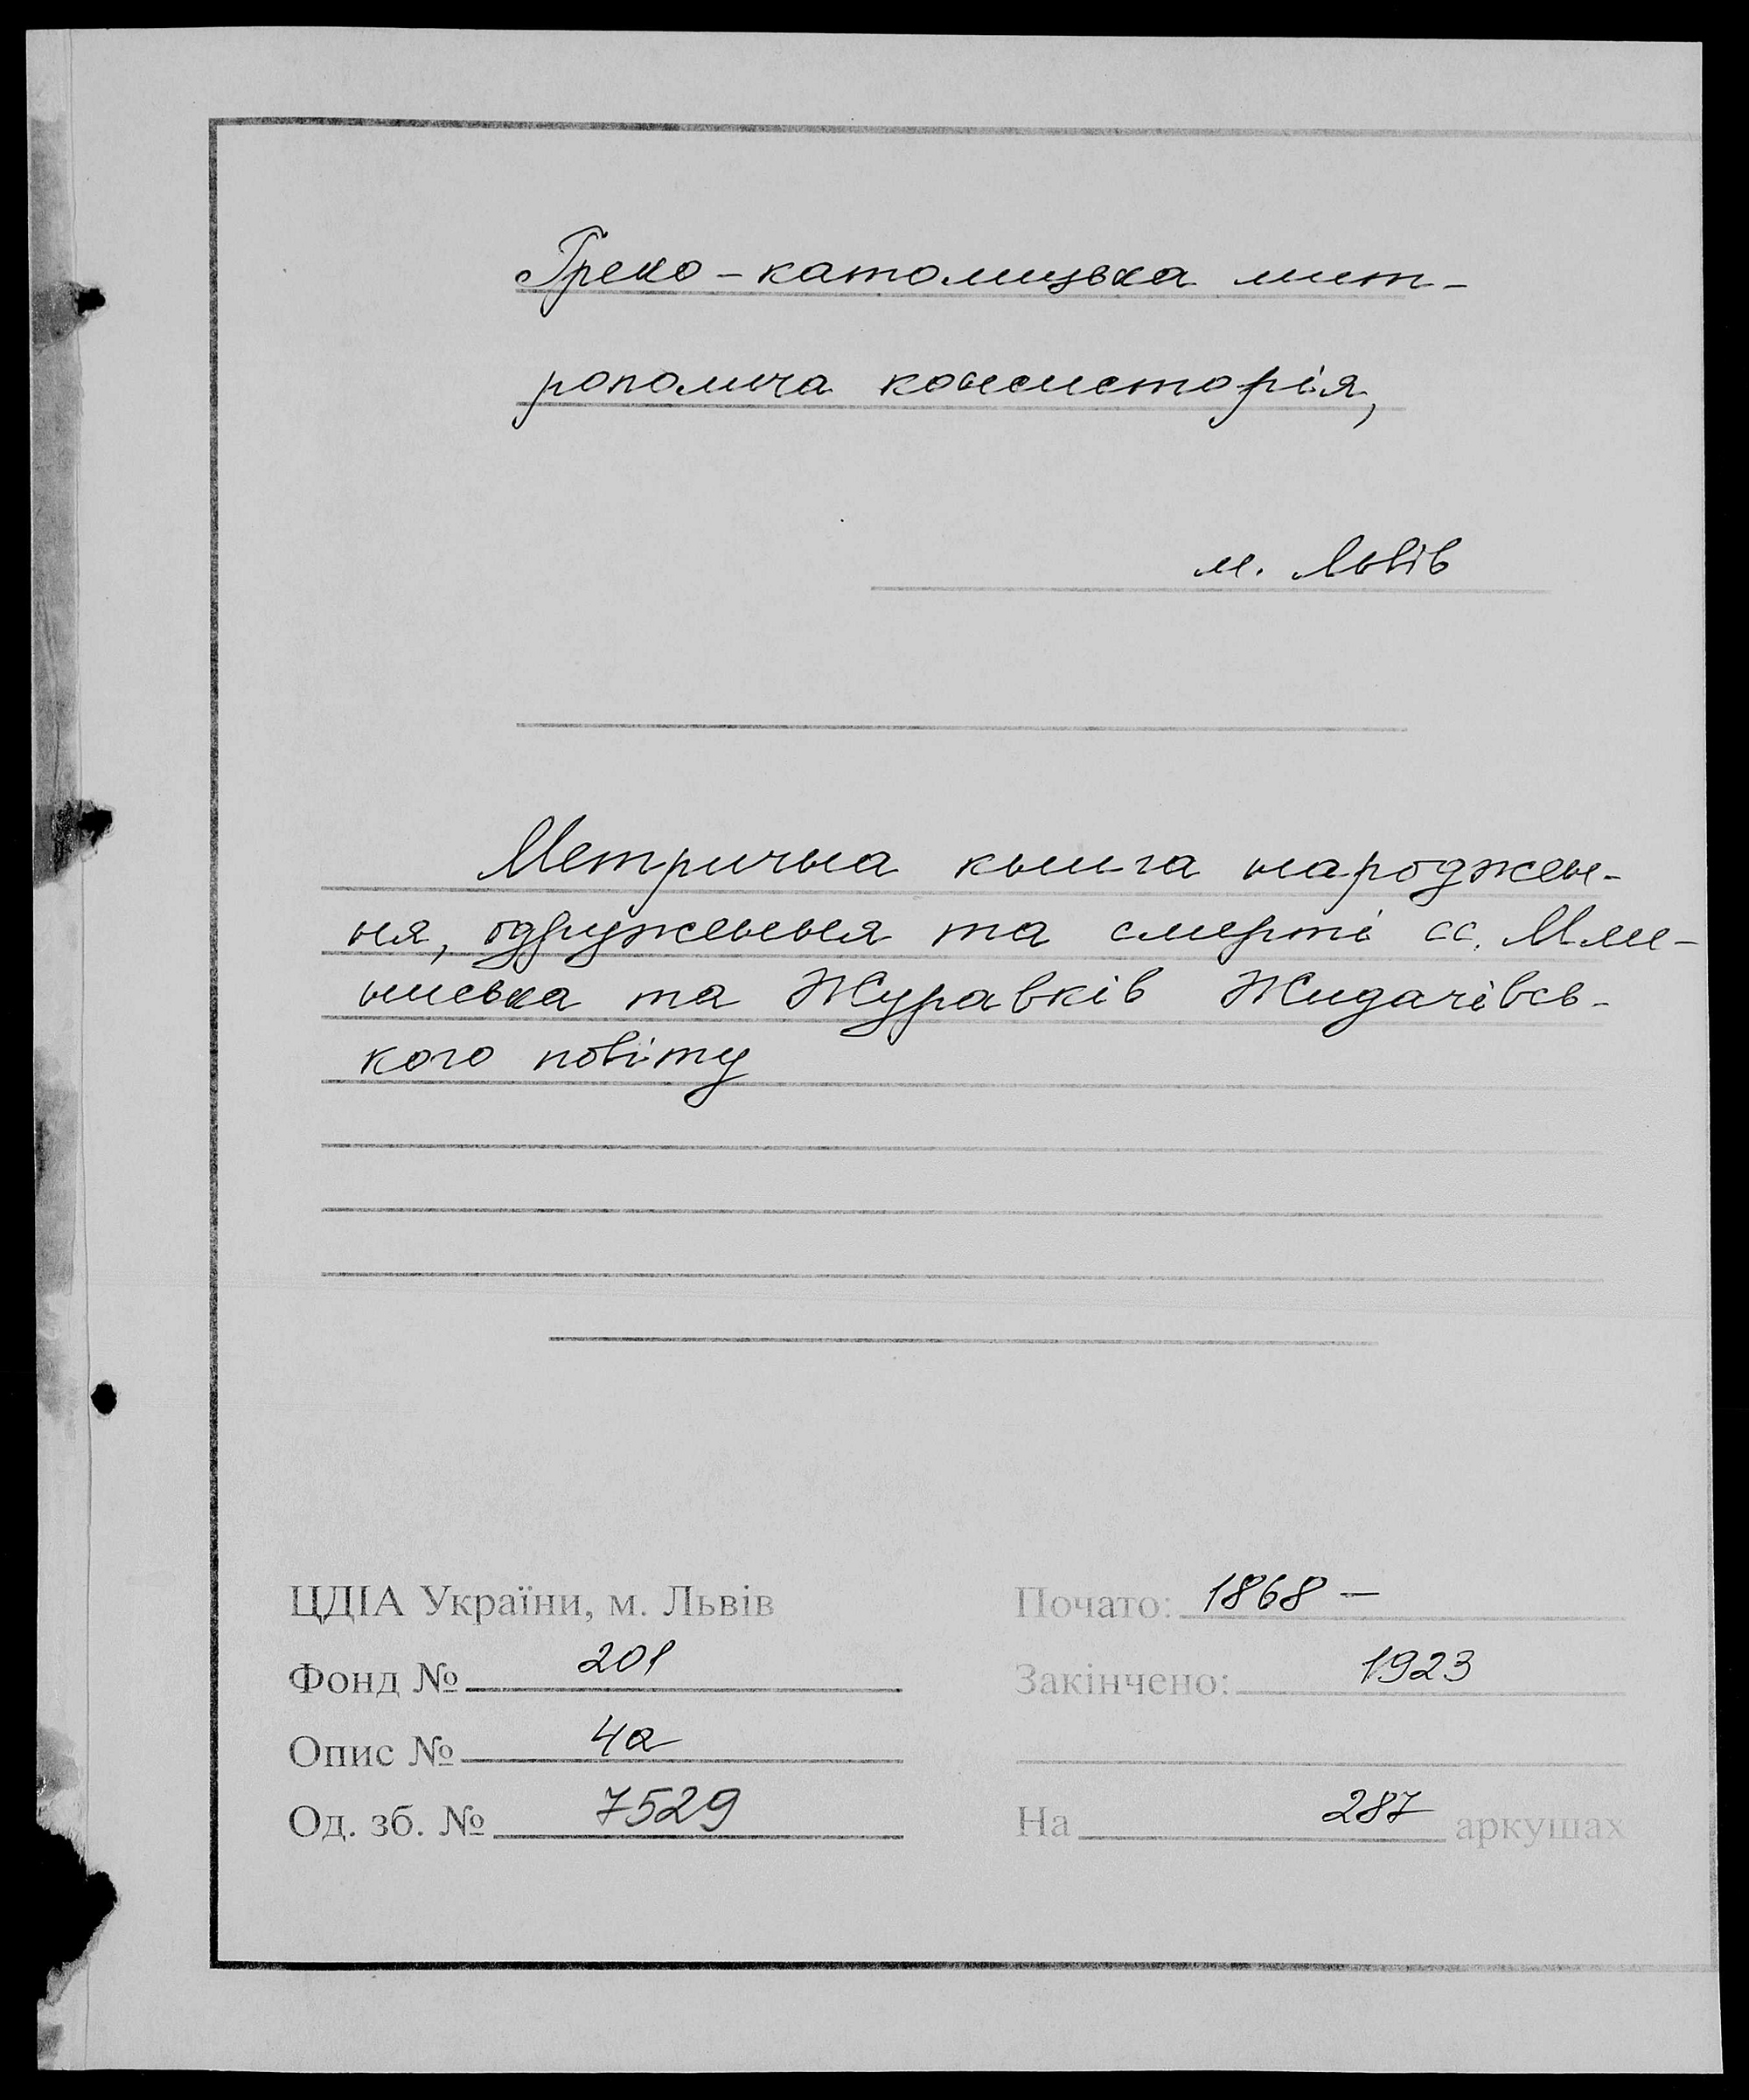 Греко-католицька мит-
рополича консисторія,
м. Львів
Метрична книга народжен-
ня, одруження та смерті сс. Мли-
ниська та Журавків Жидачівсь-
кого повіту
ЦДІА України, м. Львів
Фонд № 201
Опис № 4а
Од. зб. № 7529
Почато: 1868 –
Закінчено: 1923
На 287 аркушах